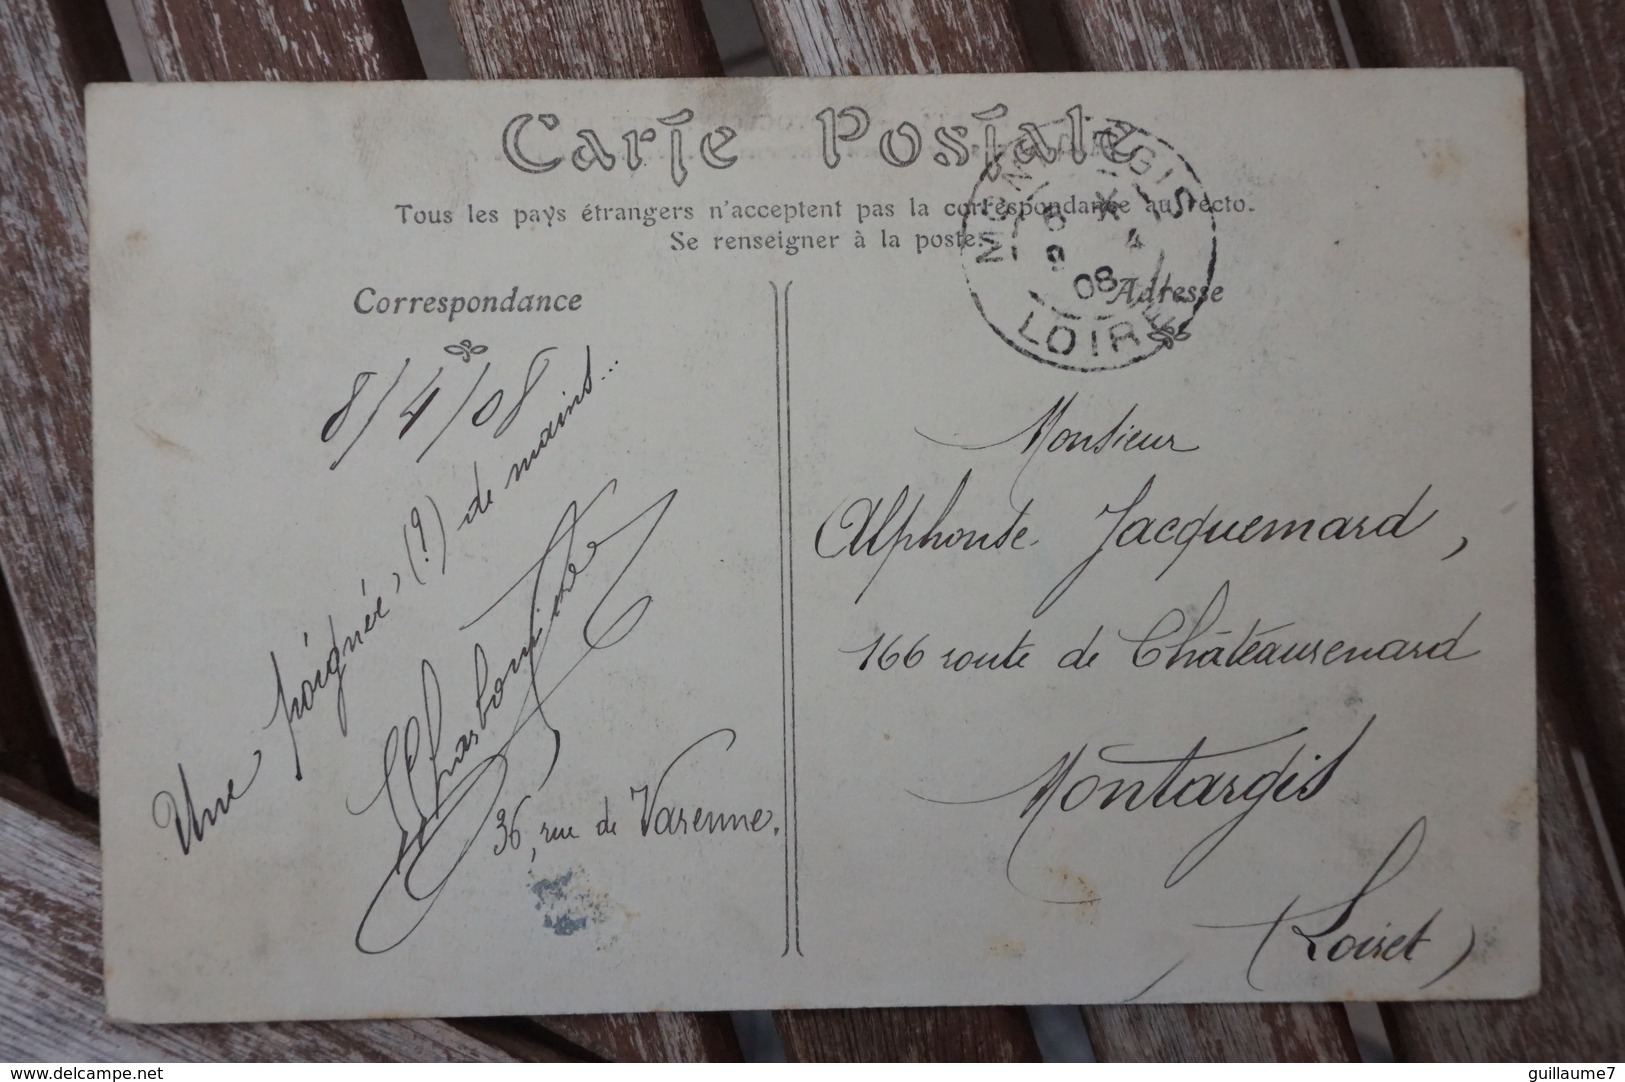 Carte Postale
Tous les pays étrangers n'acceptent pas la correspondance au recto.
Se renseigner à la poste.
MONTARGIS
4
08
LOIRET
Correspondance
Adresse
8/4/08
Une poignée, (?) de mains...
36, rue de Varenne.
Monsieur
Alphonse Jacquemard,
166 route de Châteaurenard
Montargis
(Loiret)
www.delcampe.net
guillaume7